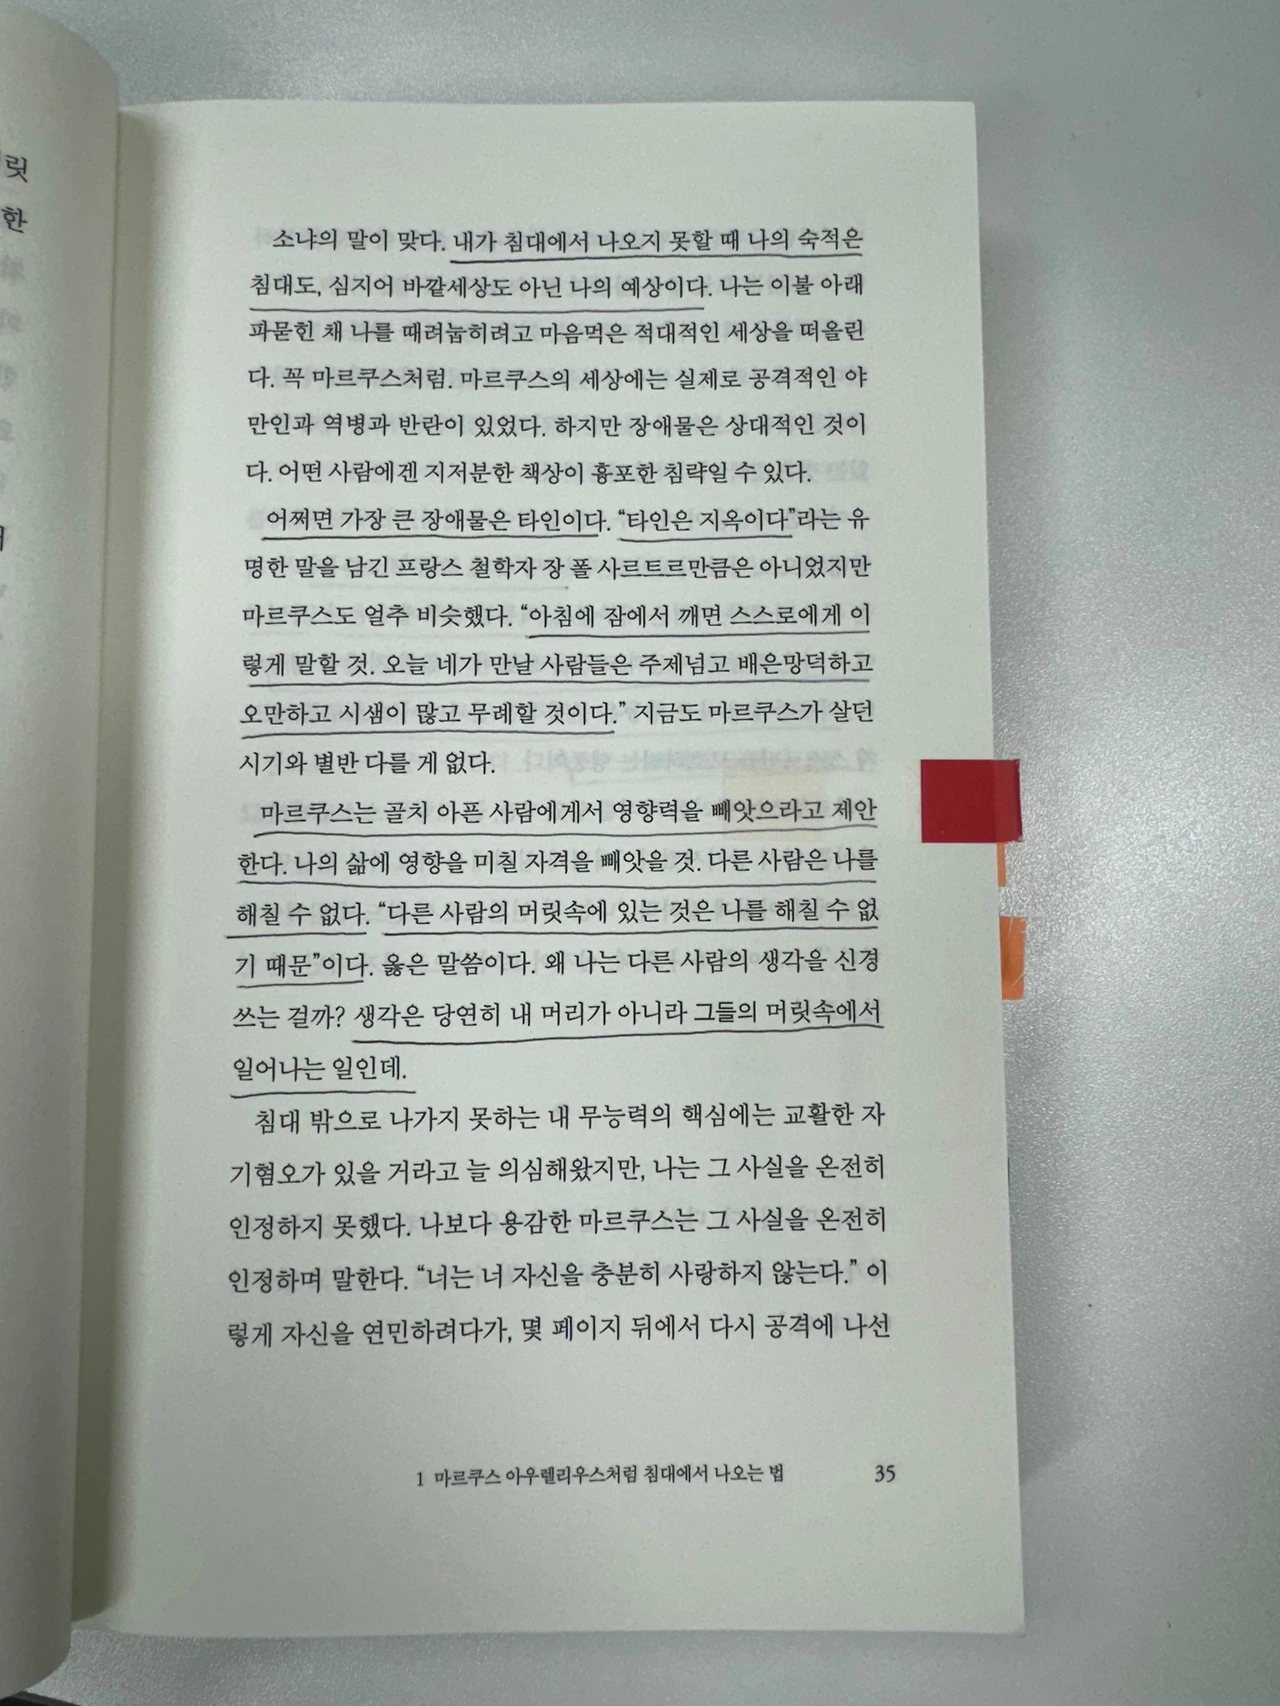 릿
한
소냐의 말이 맞다. 내가 침대에서 나오지 못할 때 나의 숙적은
침대도, 심지어 바깥세상도 아닌 나의 예상이다. 나는 이불 아래
파묻힌 채 나를 때려눕히려고 마음먹은 적대적인 세상을 떠올린
다. 꼭 마르쿠스처럼. 마르쿠스의 세상에는 실제로 공격적인 야
만인과 역병과 반란이 있었다. 하지만 장애물은 상대적인 것이
다. 어떤 사람에겐 지저분한 책상이 흉포한 침략일 수 있다.
어쩌면 가장 큰 장애물은 타인이다. “타인은 지옥이다”라는 유
명한 말을 남긴 프랑스 철학자 장 폴 사르트르만큼은 아니었지만
마르쿠스도 얼추 비슷했다. “아침에 잠에서 깨면 스스로에게 이
렇게 말할 것. 오늘 네가 만날 사람들은 주제넘고 배은망덕하고
오만하고 시샘이 많고 무례할 것이다.” 지금도 마르쿠스가 살던
시기와 별반 다를 게 없다.
마르쿠스는 골치 아픈 사람에게서 영향력을 빼앗으라고 제안
한다. 나의 삶에 영향을 미칠 자격을 빼앗을 것. 다른 사람은 나를
해칠 수 없다. “다른 사람의 머릿속에 있는 것은 나를 해칠 수 없
기 때문”이다. 옳은 말씀이다. 왜 나는 다른 사람의 생각을 신경
쓰는 걸까? 생각은 당연히 내 머리가 아니라 그들의 머릿속에서
일어나는 일인데.
침대 밖으로 나가지 못하는 내 무능력의 핵심에는 교활한 자
기혐오가 있을 거라고 늘 의심해왔지만, 나는 그 사실을 온전히
인정하지 못했다. 나보다 용감한 마르쿠스는 그 사실을 온전히
인정하며 말한다. “너는 너 자신을 충분히 사랑하지 않는다.” 이
렇게 자신을 연민하려다가, 몇 페이지 뒤에서 다시 공격에 나선
1 마르쿠스 아우렐리우스처럼 침대에서 나오는 법 35